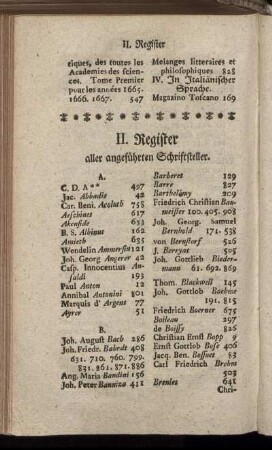 II. Register
riques, des toutes les
Academies des scien-
ces. Tome Premier
pour les années 1665.
1666. 1667. 547
Melanges litteraires et
philosophiques 828
IV. In Italiänischer
Sprache.
Magazino Toscano 169
II. Register
aller angeführten Schriftsteller.
A.
C. D. A** 497
Jac. Abbadie 42
Car. Beni. Acoluth 758
Aeschines 617
Akenside 633
B. S. Albinus 162
Amieth 635
Wendelin Ammersin 121
Joh. Georg Angerer 42
Casp. Innocentius An-
saldi 193
Paul Anton 12
Annibal Antonini 801
Marquis d' Argens 77
Ayrer 51
B.
Joh. August Bach 286
Joh. Friedr. Bahrdt 408
631. 710. 760. 799.
831. 861. 871. 886
Ang. Maria Bandini 156
Joh. Peter Banniza 411
Barberet 129
Barre 827
Barthelémy 209
Friedrich Christian Bau-
meister 100. 405. 908
Joh. Georg. Samuel
Bernhold 171. 538
von Bernstorf 526
J. Berryat 505
Joh. Gottlieb Bieder-
mann 61. 692. 869
Thom. Blackwell 145
Joh. Gottlob Boehme
191. 815
Friedrich Boerner 675
Boileau 297
de Boissy 826
Christian Ernst Bopp 9
Ernst Gottlob Bose 406
Jacq. Ben. Bossuet 83
Carl Friedrich Brehm
508
Brenles 641
Chri-